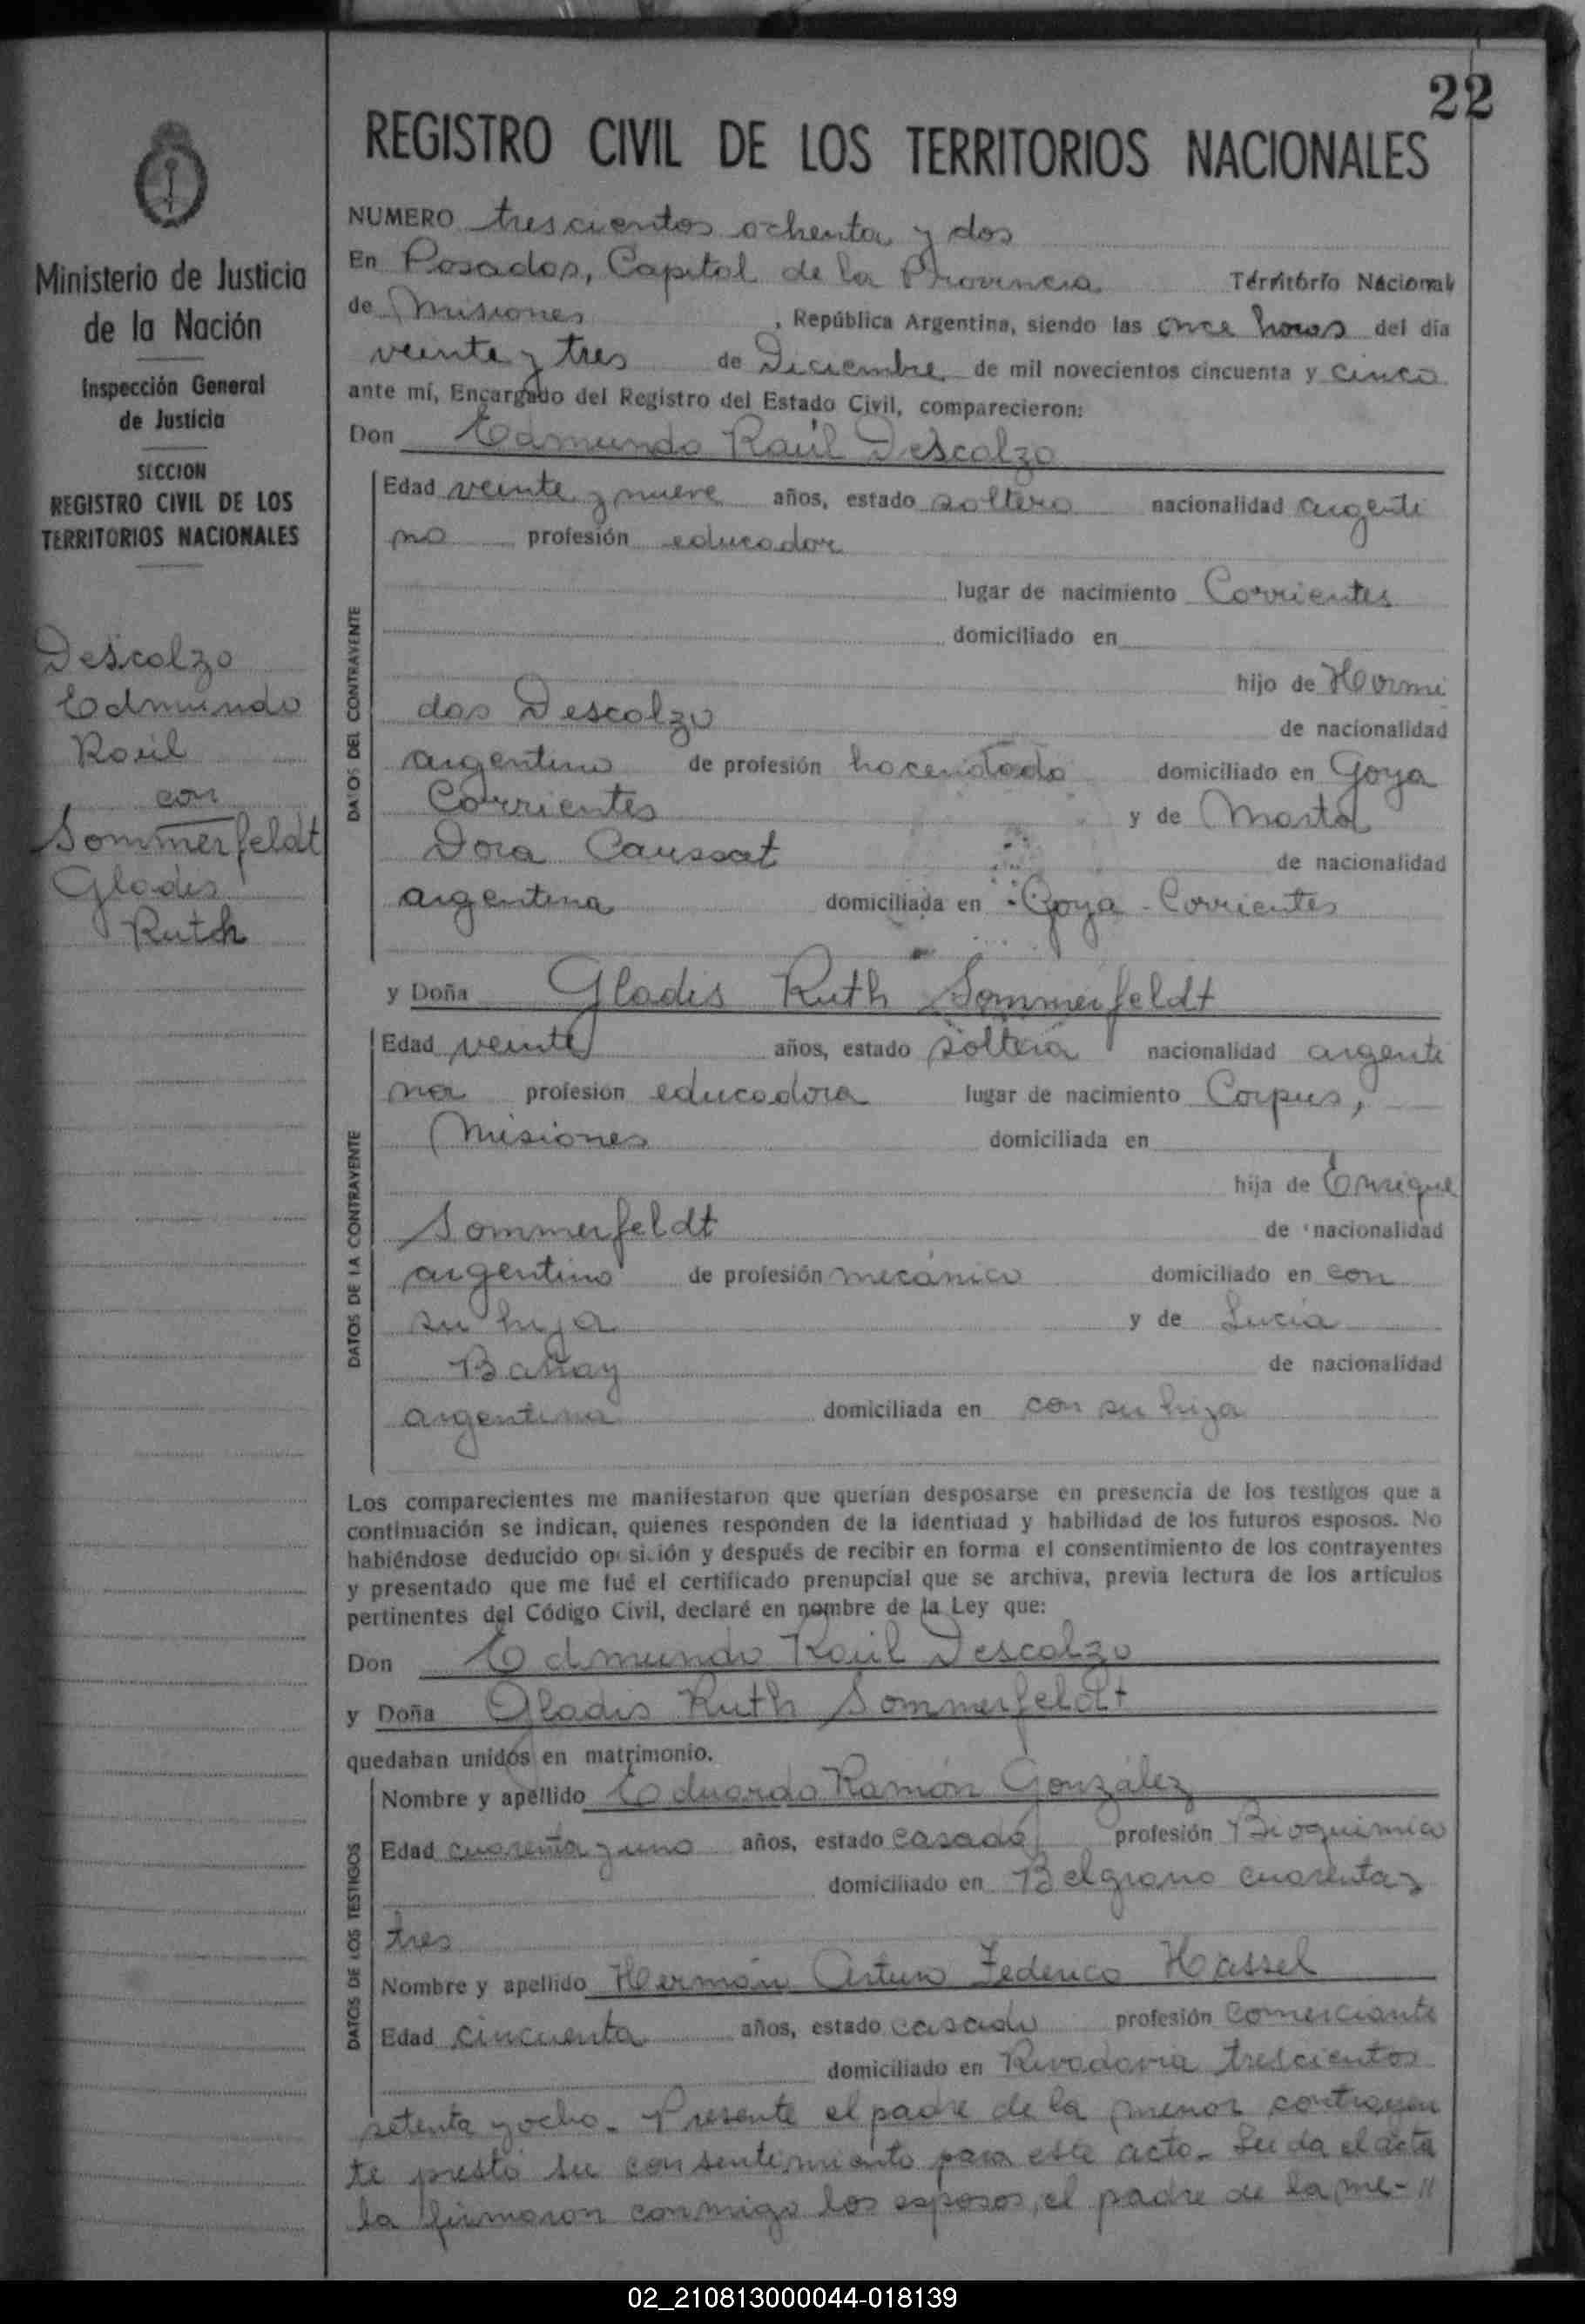 22
REGISTRO CIVIL DE LOS TERRITORIOS NACIONALES
Ministerio de Justicia
de la Nación
Inspección General
de Justicia
SECCION
REGISTRO CIVIL DE LOS
TERRITORIOS NACIONALES
Descalzo
Edmundo
Raúl
con
Sommerfeldt
Gladis
Ruth
NUMERO trescientos ochenta y dos
En Posadas, Capital de la Provincia Territorio Nacional
de Misiones, República Argentina, siendo las once horas del día
veinte y tres de Diciembre de mil novecientos cincuenta y cinco
ante mí, Encargado del Registro del Estado Civil, comparecieron:
Don Edmundo Raúl Descalzo
DATOS DEL CONTRAYENTE
Edad veinte y nueve años, estado soltero nacionalidad argenti
no profesión educador
lugar de nacimiento Corrientes
domiciliado en
hijo de Hormi
das Descalzo
de nacionalidad
argentino de profesión hacendado domiciliado en Goya
Corrientes y de Marta
Dora Caussat de nacionalidad
argentina domiciliada en Goya - Corrientes
y Doña Gladis Ruth Sommerfeldt
DATOS DE LA CONTRAYENTE
Edad veinte años, estado soltera nacionalidad argenti
na profesión educadora lugar de nacimiento Corpus,
Misiones domiciliada en
hija de Enrique
Sommerfeldt de nacionalidad
argentino de profesión mecánico domiciliado en con
su hija y de Lucía
de nacionalidad
argentina domiciliada en con su hija
Los comparecientes me manifestaron que querían desposarse en presencia de los testigos que a
continuación se indican, quienes responden de la identidad y habilidad de los futuros esposos. No
habiéndose deducido oposición y después de recibir en forma el consentimiento de los contrayentes
y presentado que me fué el certificado prenupcial que se archiva, previa lectura de los artículos
pertinentes del Código Civil, declaré en nombre de la Ley que:
Don Edmundo Raúl Descalzo
y Doña Gladis Ruth Sommerfeldt
quedaban unidos en matrimonio.
DATOS DE LOS TESTIGOS
Nombre y apellido Eduardo Ramón González
Edad cuarenta y uno años, estado casado profesión Bioquímico
domiciliado en Belgrano cuarenta y
tres
Nombre y apellido Hermán Arturo Federico Hassel
Edad cincuenta años, estado casado profesión Comerciante
domiciliado en Rivadavia trescientos
setenta y ocho. Presente el padre de la menor contrayen
te prestó su consentimiento para este acto. Leída el acta
la firmaron conmigo los esposos, el padre de la me- //
02_210813000044-018139